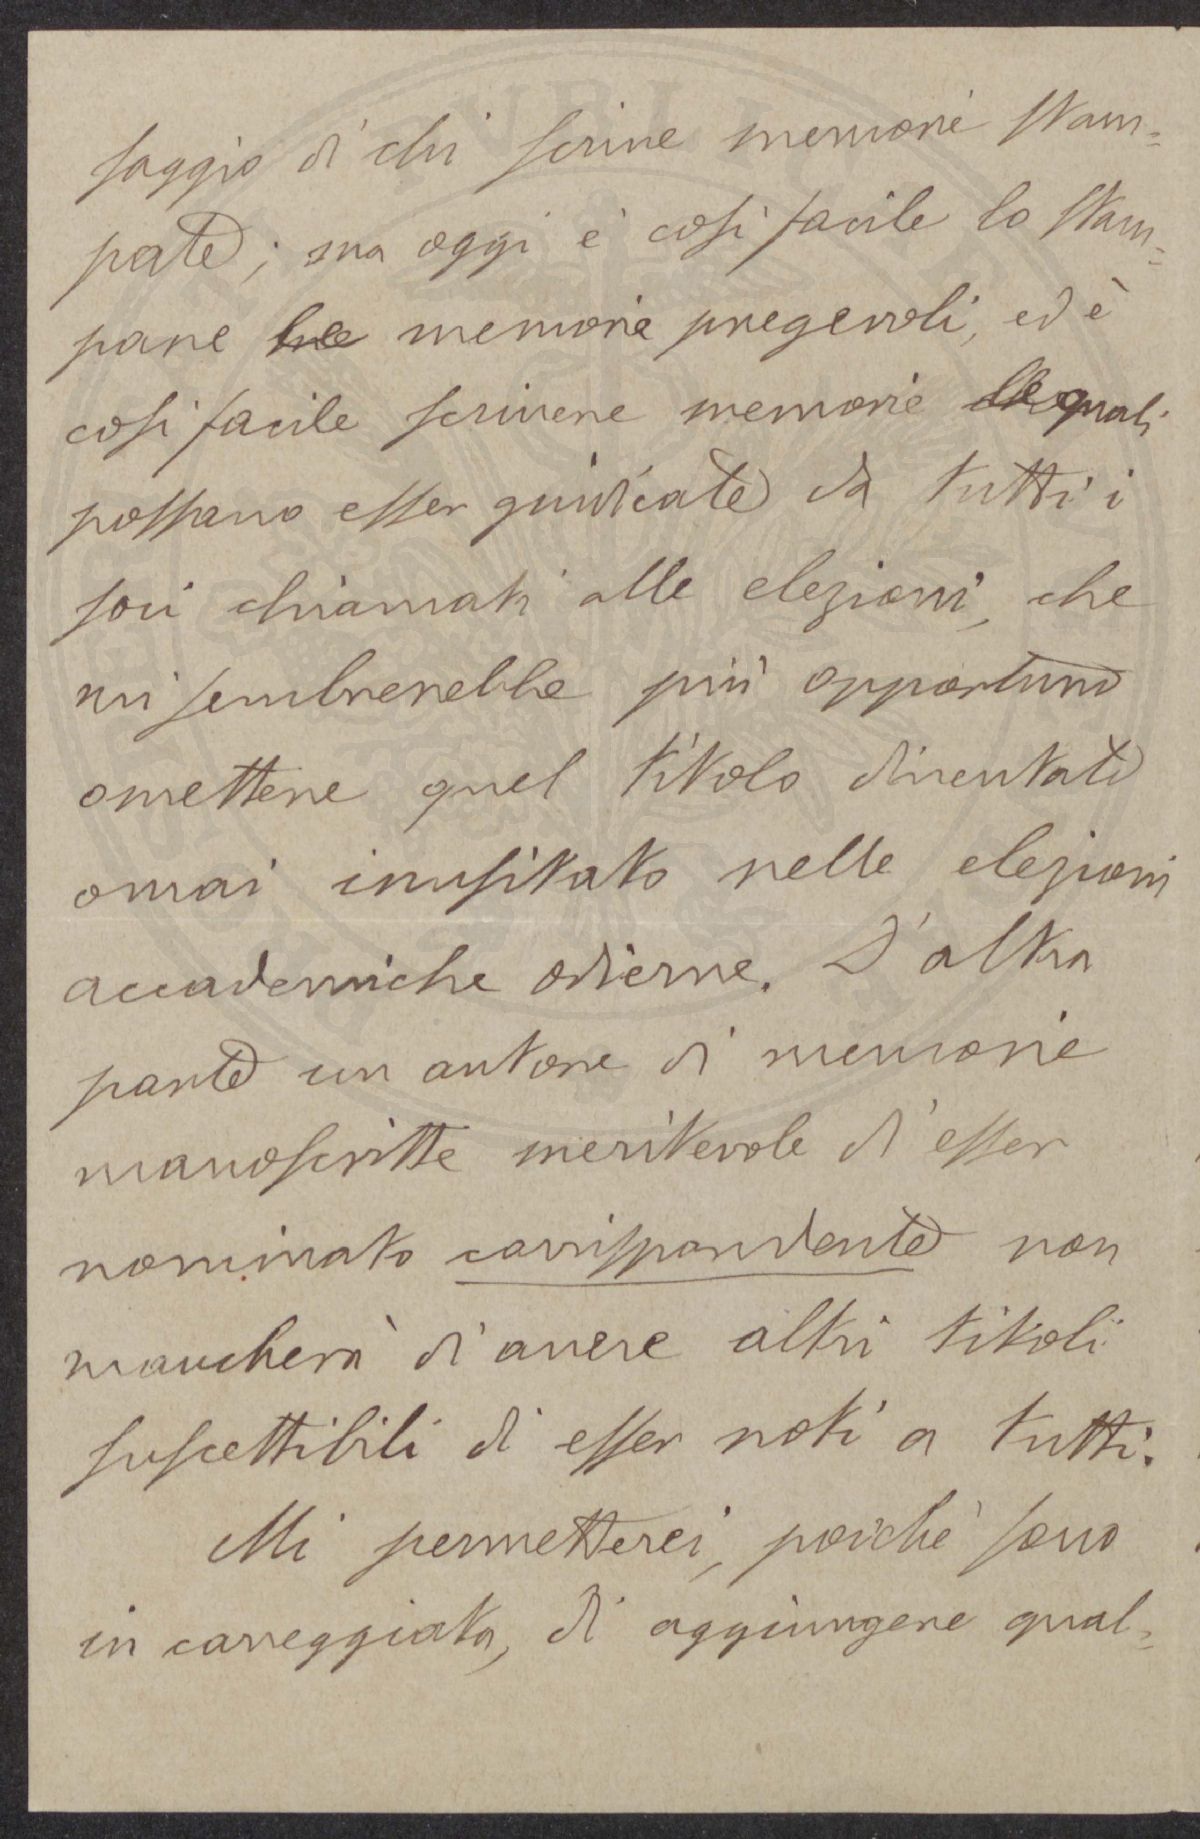 saggio di chi scrive memorie stam=
pate; ma oggi è così facile lo stam=
pare le memorie pregevoli, ed è
così facile scrivere memorie le quali
possano esser giudicate da tutti i
soci chiamati alle elezioni, che
mi sembrerebbe più opportuno
omettere quel titolo diventato
omai inusitato nelle elezioni
accademiche odierne. D'altra
parte un autore di memorie
manoscritte meritevole di esser
nominato corrispondente non
mancherà di avere altri titoli
suscettibili di esser noti a tutti.
Mi permetterei, poiché sono
in carreggiata, di aggiungere qual=